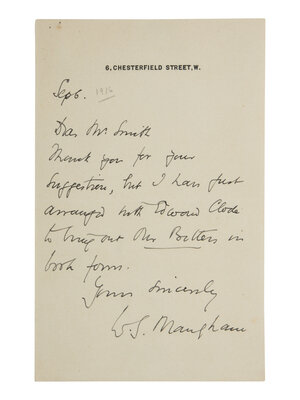 6, CHESTERFIELD STREET, W.
Sep 6. 1916
Dear Mr Smith
Thank you for your
suggestion, but I have just
arranged with Edward Clode
to bring out Our Betters in
book form.
Yours sincerely
W.S. Maugham